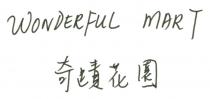 WONDERFUL MART
奇蹟花園